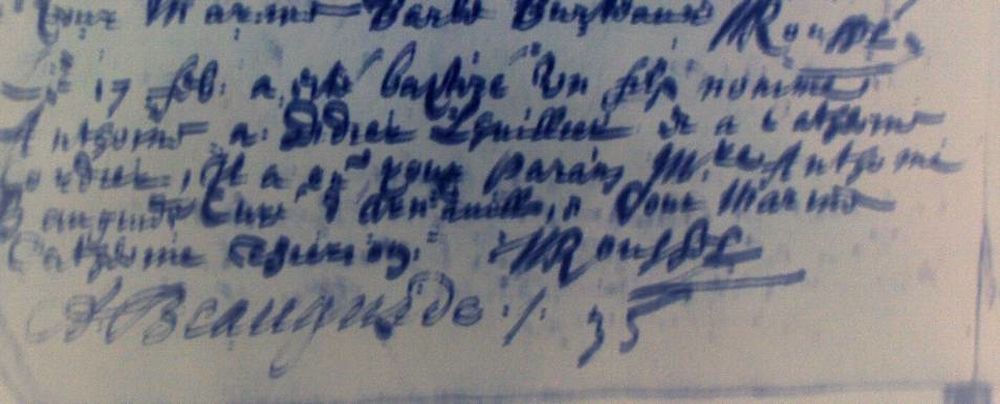 pour Marine Barbe
MRoussel
Le 17 feb: a esté baptizé un filz nommé
Anthoine a Didier Lhuillier et a Catherine
Cordier, Il a eu pour parain M.re Anthoine
Beauguide Curé d'Arn , et pour Marine
Catherine MRoussel
ABeauguide ./. 35